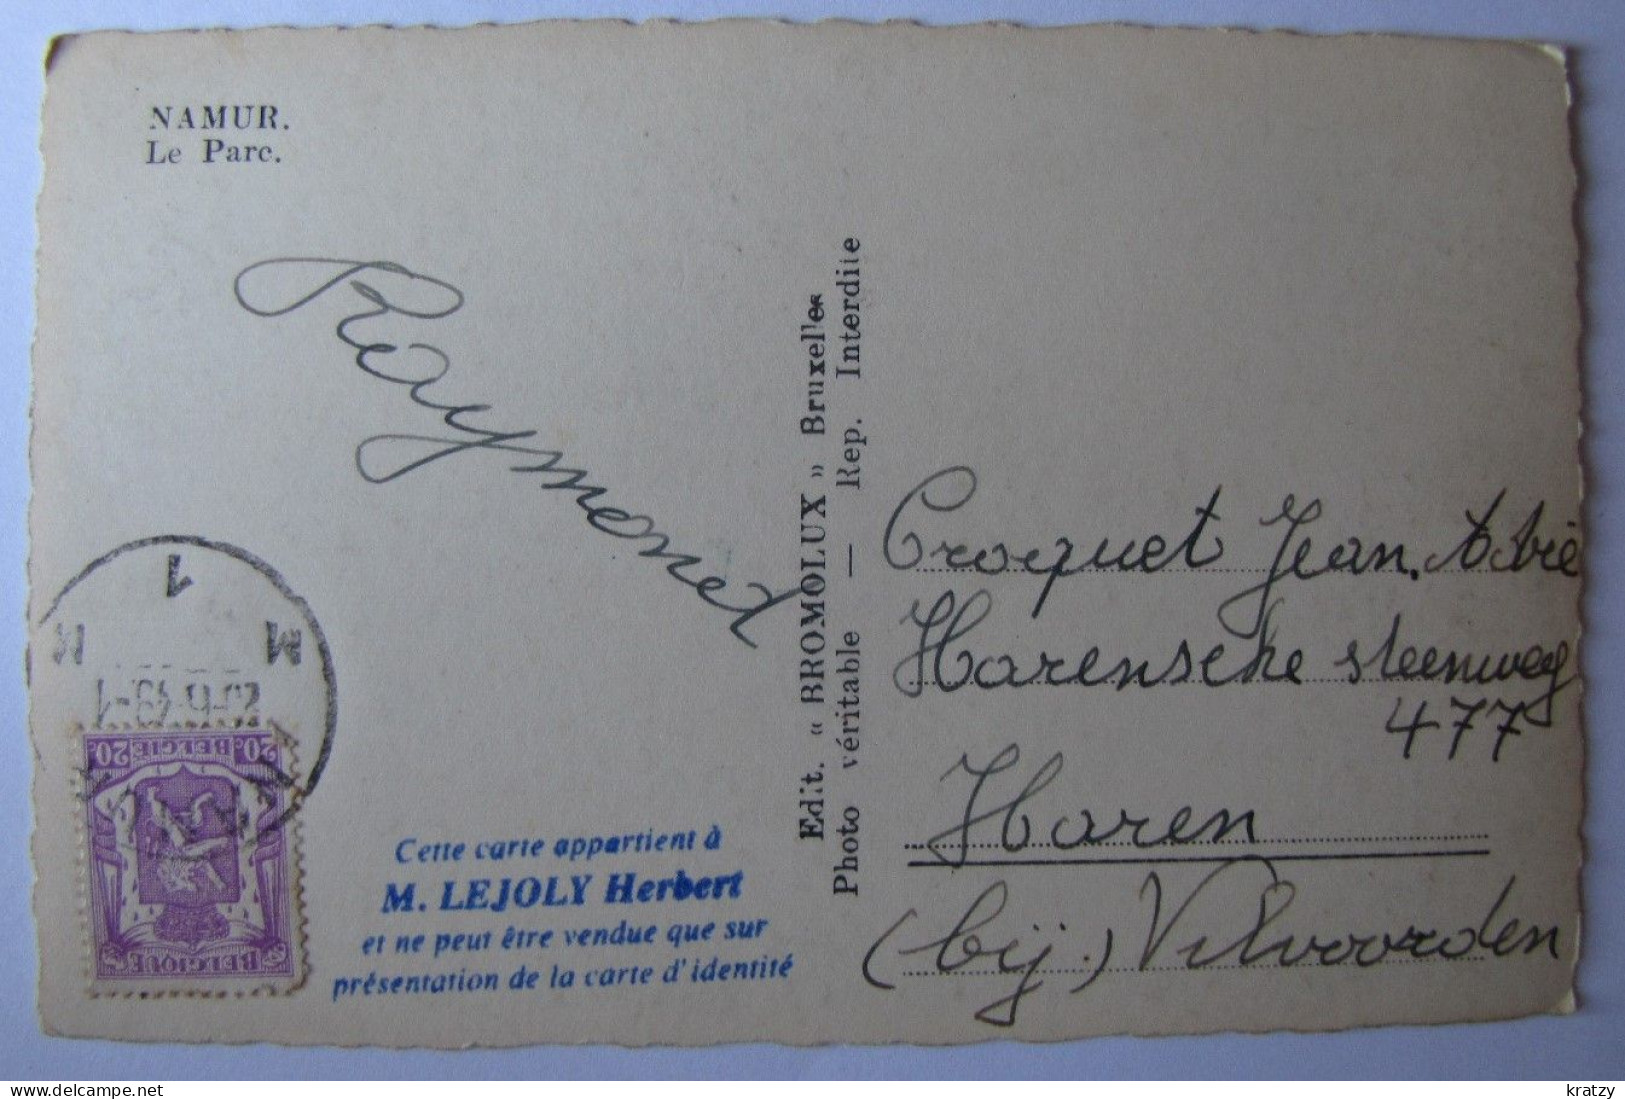 NAMUR.
Le Parc.
Raymonet
Edit. « BROMOLUX » Bruxelles
Photo véritable — Rep. Interdite
Croquet Jean.
Harensche steenweg
477
Haren
(bij.) Vilvoorden
1
M
20c BELGIË 20c
BELGIQUE
Cette carte appartient à
M. LEJOLY Herbert
et ne peut être vendue que sur
présentation de la carte d'identité
delcampe.net
kratzy